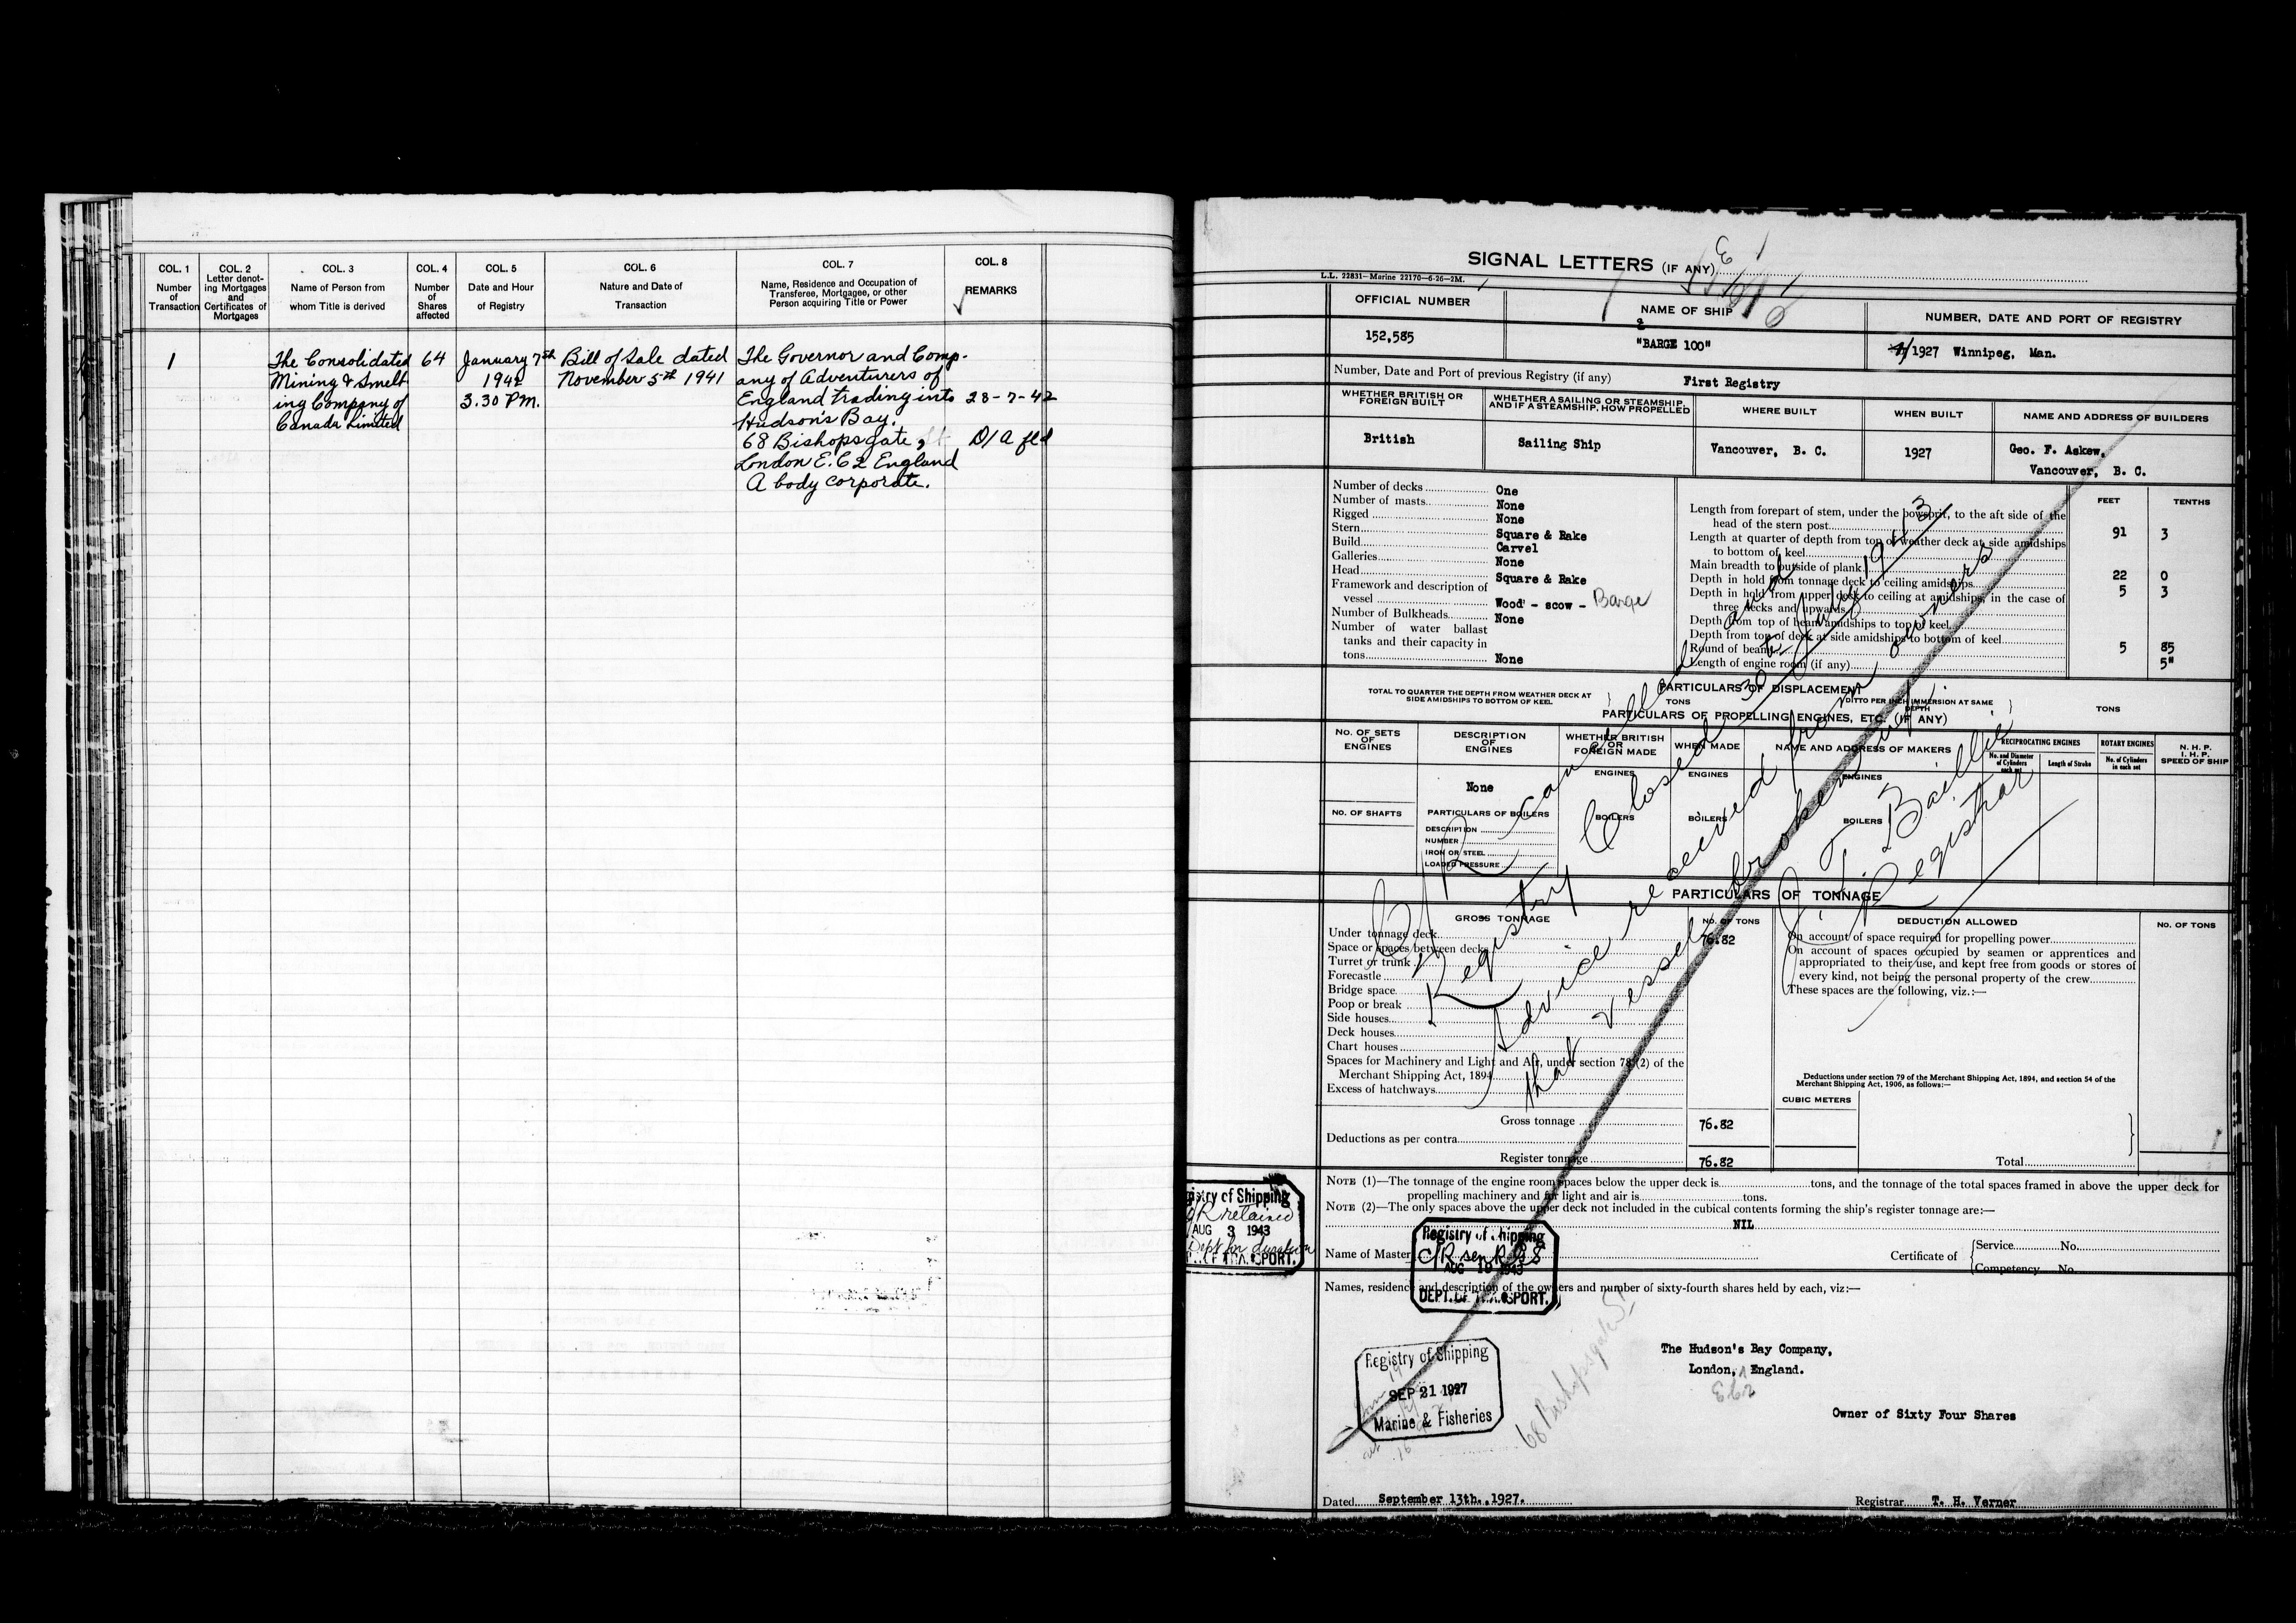 COL. 1
Number
of
Transaction
COL. 2
Letter denot-
ing Mortgages
and
Certificates of
Mortgages
COL. 3
Name of Person from
whom Title is derived
COL. 4
Number
of
Shares
affected
COL. 5
Date and Hour
of Registry
COL. 6
Nature and Date of
Transaction
COL. 7
Name, Residence and Occupation of
Transferee, Mortgagee, or other
Person acquiring Title or Power
COL. 8
REMARKS
1
The Consolidated
Mining & Smelt
ing Company of
Canada Limited
64
January 7th
1942
3.30 P.M.
Bill of Sale dated
November 5th 1941
The Governor and Comp-
any of Adventurers of
England trading into
Hudson's Bay.
68 Bishopsgate,
London E.C2 England
A body corporate.
28-7-42
D/A fld
SIGNAL LETTERS (IF ANY)
L.L. 22831—Marine 22170—6-26—2M.
OFFICIAL NUMBER
152,585
NAME OF SHIP
"BARGE 100"
NUMBER, DATE AND PORT OF REGISTRY
1927 Winnipeg, Man.
Number, Date and Port of previous Registry (if any) First Registry
WHETHER BRITISH OR
FOREIGN BUILT
British
WHETHER A SAILING OR STEAMSHIP,
AND IF A STEAMSHIP, HOW PROPELLED
Sailing Ship
WHERE BUILT
Vancouver, B. C.
WHEN BUILT
1927
NAME AND ADDRESS OF BUILDERS
Geo. F. Askew,
Vancouver, B. C.
Number of decks One
Number of masts None
Rigged None
Stern Square & Rake
Build Carvel
Galleries None
Head Square & Rake
Framework and description of
vessel Wood - scow - Barge
Number of Bulkheads None
Number of water ballast
tanks and their capacity in
tons None
FEET TENTHS
Length from forepart of stem, under the bowsprit, to the aft side of the
head of the stern post 91 3
Length at quarter of depth from top of weather deck at side amidships
to bottom of keel
Main breadth to outside of plank 22 0
Depth in hold from tonnage deck to ceiling amidships 5 3
Depth in hold from upper deck to ceiling at amidships, in the case of
three decks and upwards
Depth from top of beam amidships to top of keel
Depth from top of deck at side amidships to bottom of keel 5 85
Round of beam 5"
Length of engine room (if any)
PARTICULARS OF DISPLACEMENT
TOTAL TO QUARTER THE DEPTH FROM WEATHER DECK AT
SIDE AMIDSHIPS TO BOTTOM OF KEEL
TONS
DITTO PER INCH IMMERSION AT SAME
DEPTH
TONS
PARTICULARS OF PROPELLING ENGINES, ETC. (IF ANY)
NO. OF SETS
OF
ENGINES
DESCRIPTION
OF
ENGINES
WHETHER BRITISH
OR
FOREIGN MADE
WHEN MADE
NAME AND ADDRESS OF MAKERS
RECIPROCATING ENGINES
No. and Diameter
of Cylinders
each set
Length of Stroke
ROTARY ENGINES
No. of Cylinders
in each set
N. H. P.
I. H. P.
SPEED OF SHIP
ENGINES
ENGINES
ENGINES
None
NO. OF SHAFTS
PARTICULARS OF BOILERS
DESCRIPTION
NUMBER
IRON OR STEEL
LOADED PRESSURE
BOILERS
BOILERS
BOILERS
C/R cancelled and
Registry Closed 30th July 1943
Advice received from owners
that vessel broken up.
Baillie
Registrar
PARTICULARS OF TONNAGE
GROSS TONNAGE
NO. OF TONS
Under tonnage deck 76.82
Space or spaces between decks
Turret or trunk
Forecastle
Bridge space
Poop or break
Side houses
Deck houses
Chart houses
Spaces for Machinery and Light and Air, under section 78 (2) of the
Merchant Shipping Act, 1894
Excess of hatchways
Gross tonnage 76.82
Deductions as per contra
Register tonnage 76.82
DEDUCTION ALLOWED
NO. OF TONS
On account of space required for propelling power
On account of spaces occupied by seamen or apprentices and
appropriated to their use, and kept free from goods or stores of
every kind, not being the personal property of the crew
These spaces are the following, viz.:—
Deductions under section 79 of the Merchant Shipping Act, 1894, and section 54 of the
Merchant Shipping Act, 1906, as follows:—
CUBIC METERS
Total
NOTE (1)—The tonnage of the engine room spaces below the upper deck is tons, and the tonnage of the total spaces framed in above the upper deck for
propelling machinery and for light and air is tons.
NOTE (2)—The only spaces above the upper deck not included in the cubical contents forming the ship's register tonnage are:—
NIL
Name of Master
Certificate of
Service No.
Competency No.
Names, residence and description of the owners and number of sixty-fourth shares held by each, viz:—
istry of Shipping
retained
AUG 3 1943
Dept for duration
Registry of Shipping
AUG 10 1943
DEPT. OF TRANSPORT.
Registry of Shipping
SEP 21 1927
Marine & Fisheries
68 Bishopsgate St
The Hudson's Bay Company,
London, England.
EC2
Owner of Sixty Four Shares
Dated September 13th., 1927.
Registrar T. H. Verner